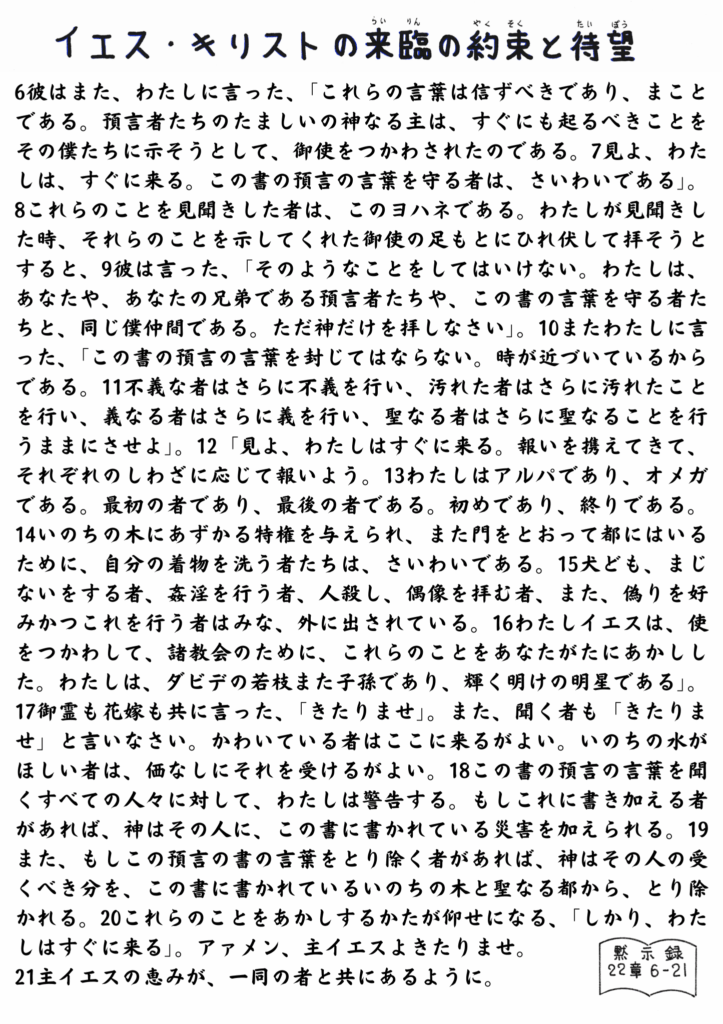 イエス・キリストの来臨の約束と待望
らいりん やくそく たいぼう
6彼はまた、わたしに言った、「これらの言葉は信ずべきであり、まこと
である。預言者たちのたましいの神なる主は、すぐにも起るべきことを
その僕たちに示そうとして、御使をつかわされたのである。7見よ、わた
しは、すぐに来る。この書の預言の言葉を守る者は、さいわいである」。
8これらのことを見聞きした者は、このヨハネである。わたしが見聞きし
た時、それらのことを示してくれた御使の足もとにひれ伏して拝そうと
すると、9彼は言った、「そのようなことをしてはいけない。わたしは、
あなたや、あなたの兄弟である預言者たちや、この書の言葉を守る者た
ちと、同じ僕仲間である。ただ神だけを拝しなさい」。10またわたしに言
った、「この書の預言の言葉を封じてはならない。時が近づいているから
である。11不義な者はさらに不義を行い、汚れた者はさらに汚れたこと
を行い、義なる者はさらに義を行い、聖なる者はさらに聖なることを行
うままにさせよ」。12「見よ、わたしはすぐに来る。報いを携えてきて、
それぞれのしわざに応じて報いよう。13わたしはアルパであり、オメガ
である。最初の者であり、最後の者である。初めであり、終りである。
14いのちの木にあずかる特権を与えられ、また門をとおって都にはいる
ために、自分の着物を洗う者たちは、さいわいである。15犬ども、まじ
ないをする者、姦淫を行う者、人殺し、偶像を拝む者、また、偽りを好
みかつこれを行う者はみな、外に出されている。16わたしイエスは、使
をつかわして、諸教会のために、これらのことをあなたがたにあかしし
た。わたしは、ダビデの若枝また子孫であり、輝く明けの明星である」。
17御霊も花嫁も共に言った、「きたりませ」。また、聞く者も「きたりま
せ」と言いなさい。かわいている者はここに来るがよい。いのちの水が
ほしい者は、価なしにそれを受けるがよい。18この書の預言の言葉を聞
くすべての人々に対して、わたしは警告する。もしこれに書き加える者
があれば、神はその人に、この書に書かれている災害を加えられる。19
また、もしこの預言の書の言葉をとり除く者があれば、神はその人の受
くべき分を、この書に書かれているいのちの木と聖なる都から、とり除
かれる。20これらのことをあかしするかたが仰せになる、「しかり、わた
しはすぐに来る」。アァメン、主イエスよきたりませ。
21主イエスの恵みが、一同の者と共にあるように。
黙示録
22章6-21